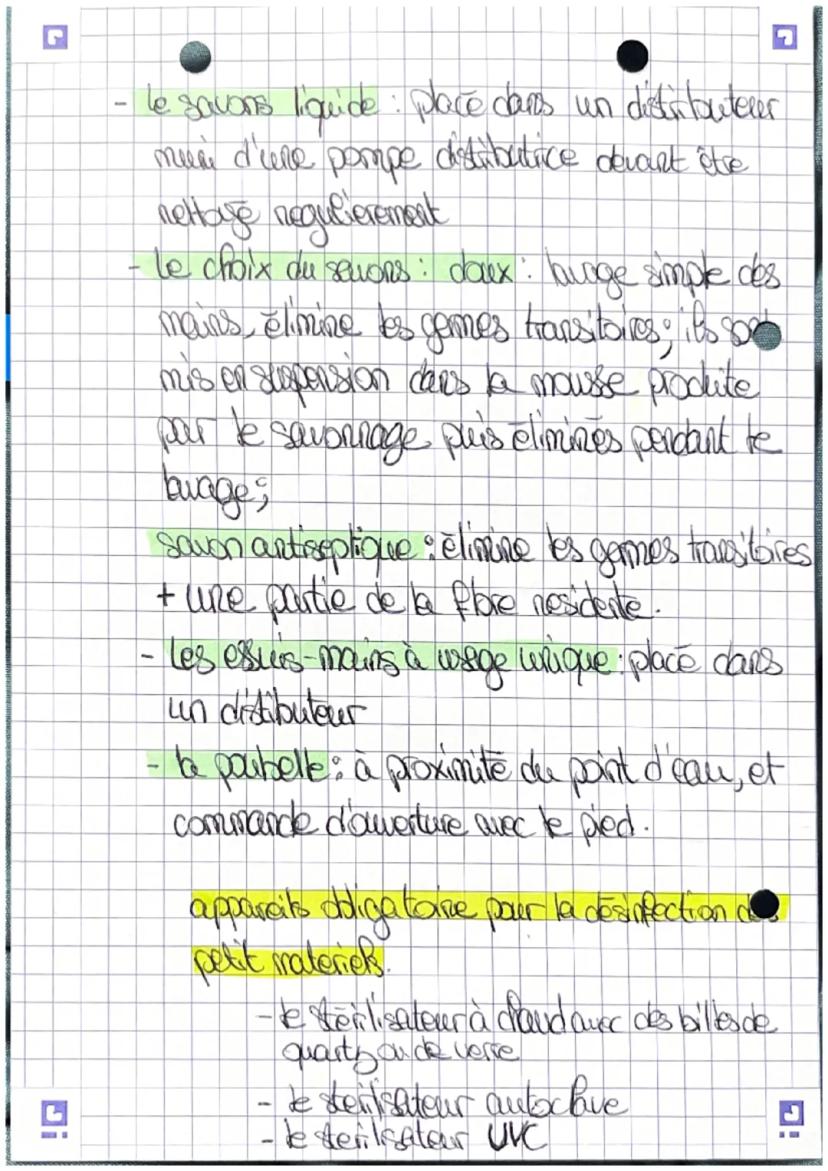 - le savons liquide : placé dans un distributeur
muni d'une pompe distributrice devant être
nettoyé regulièrement
- le choix du savons : doux : lavage simple des
mains, élimine les germes transitoires ; ils sont
mis en suspension dans la mousse produite
par le savonnage puis éliminés pendant le
lavage ;
savon antiseptique : élimine les germes transitoires
+ une partie de la flore residente.
- les essuis-mains à usage unique : placé dans
un distibuteur
- la poubelle : à proximité du point d'eau, et
commande d'ouverture avec le pied.
appareils obligatoire pour la désinfection des
petit materiels.
- le stérilisateur à chaud avec des billes de
quartz ou de verre
- le sterilisateur autoclave
- le sterilisateur UVC